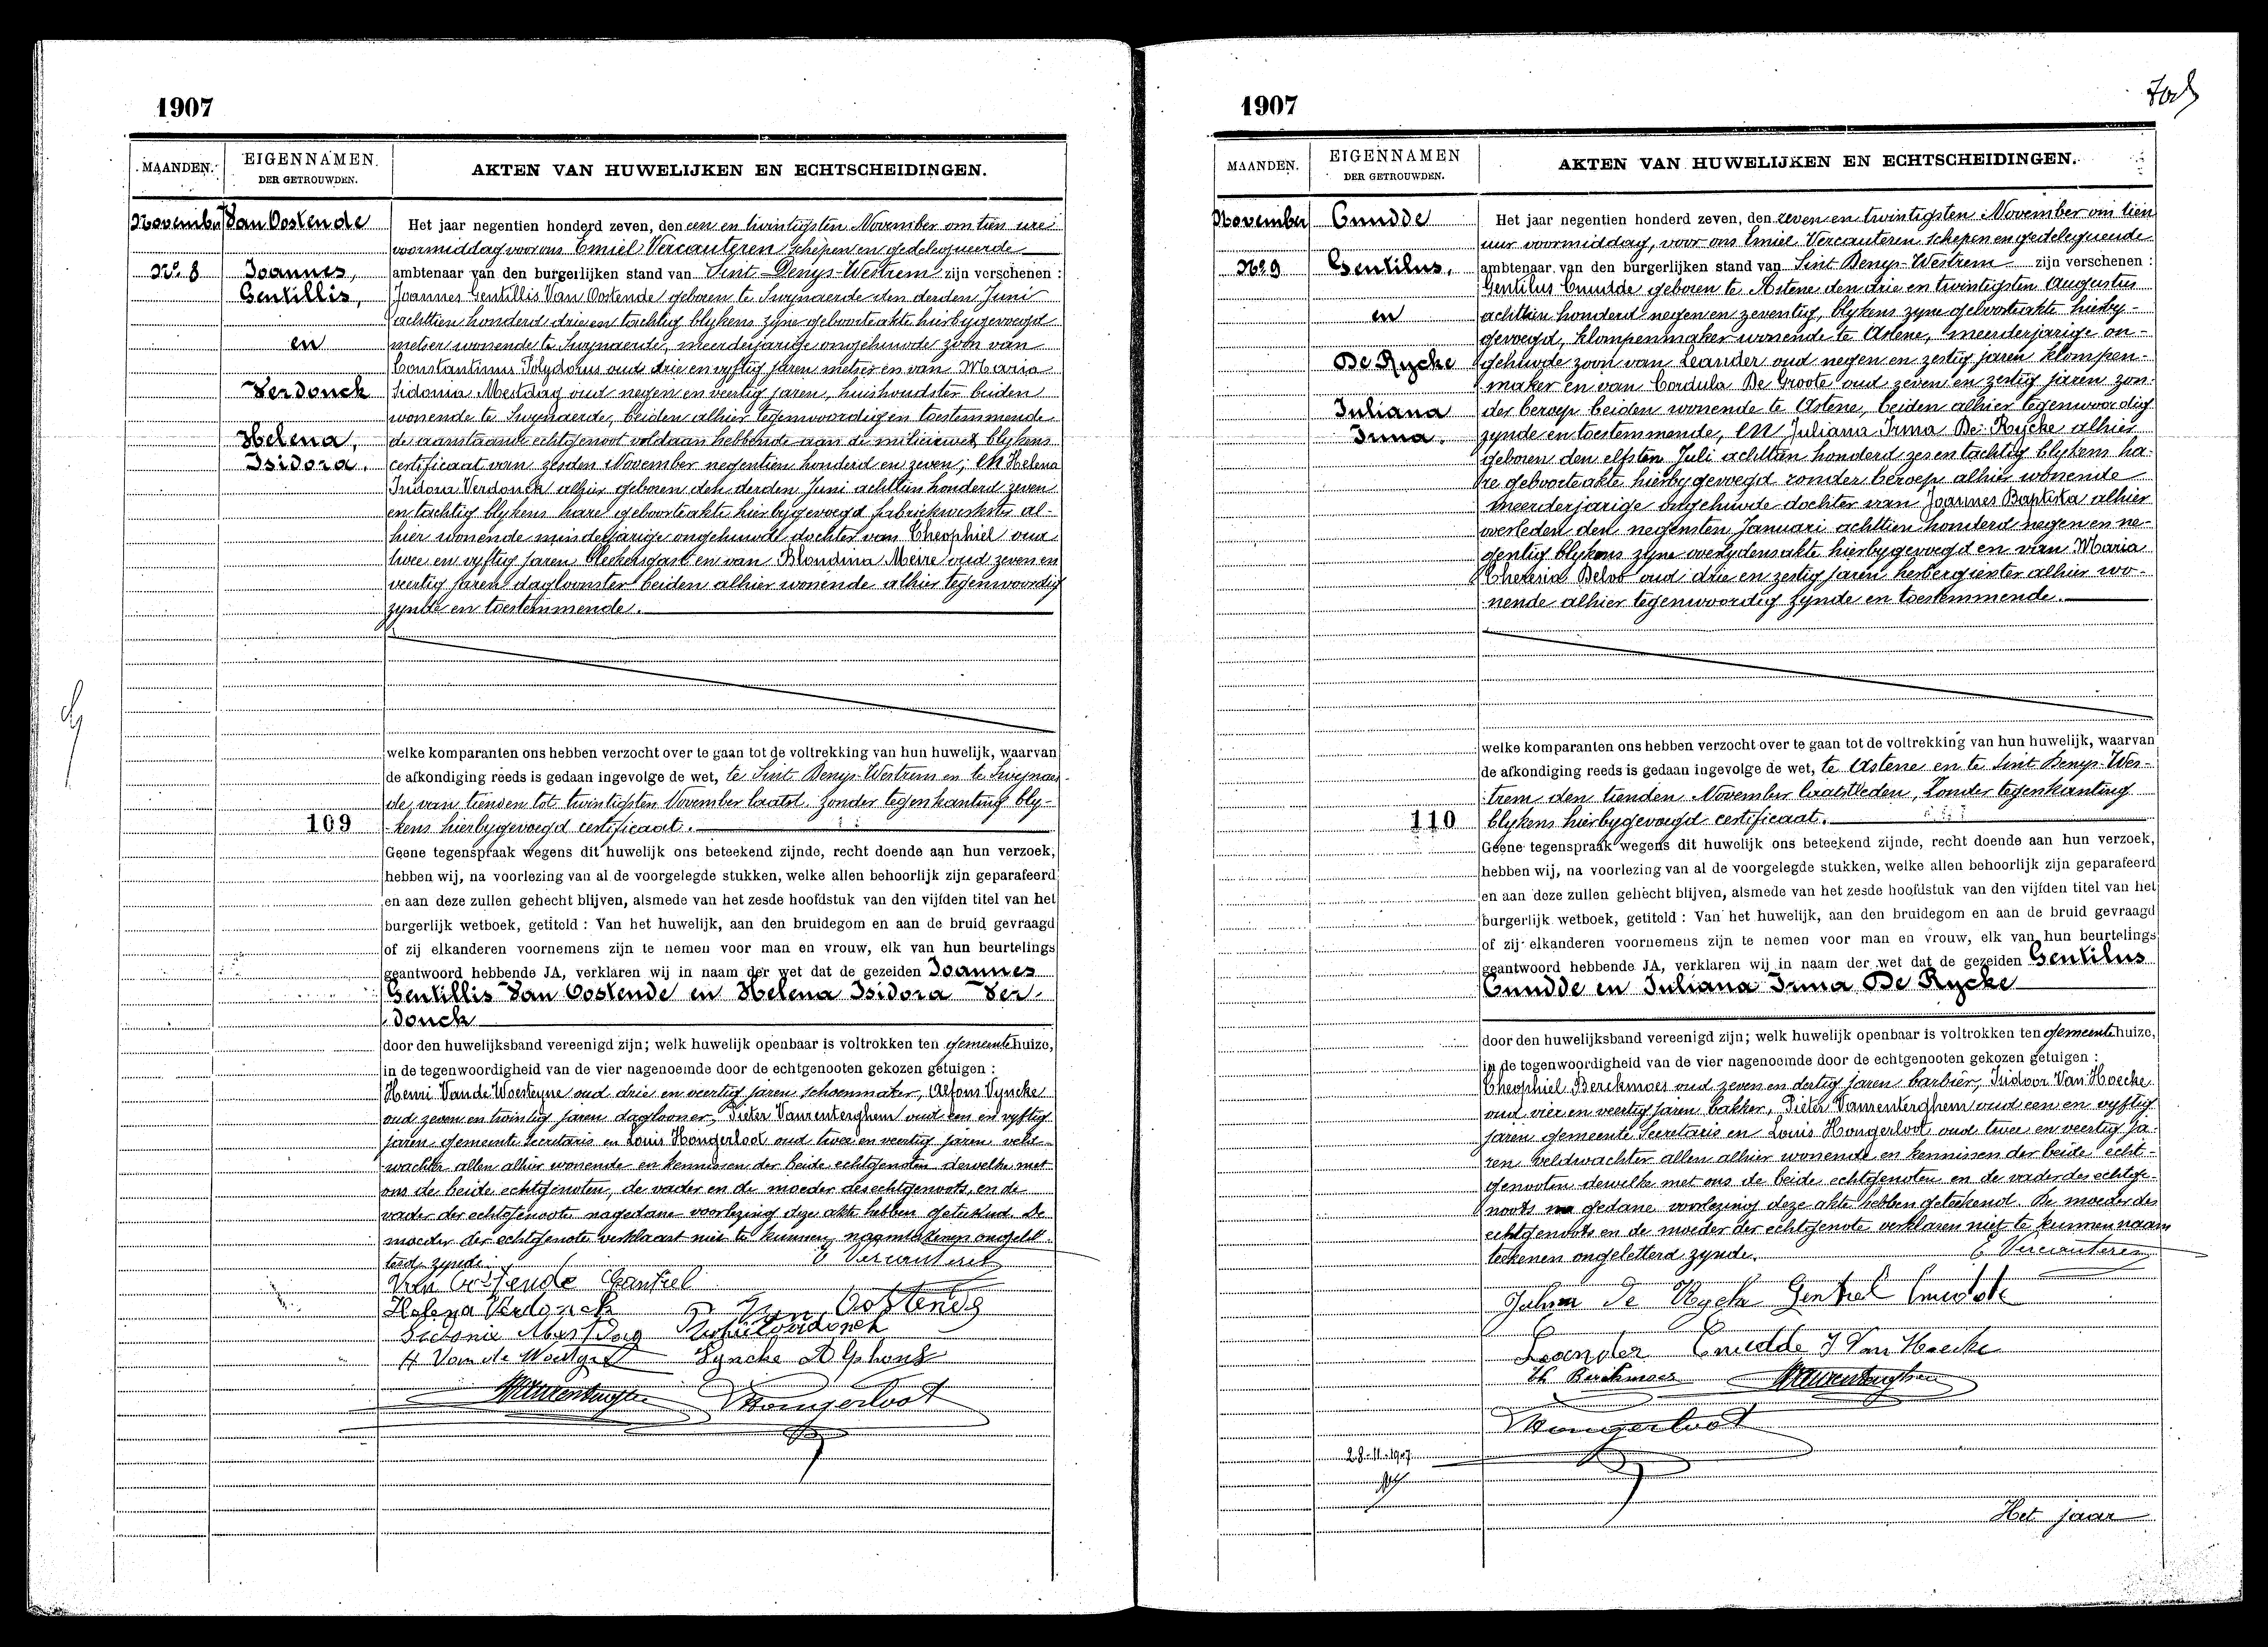 1907
MAANDEN. EIGENNAMEN DER GETROUWDEN. AKTEN VAN HUWELIJKEN EN ECHTSCHEIDINGEN.
November
No. 8
Van Oostende
Joannes,
Gentillis,
en
Verdonck
Helena,
Isidora.
109
Het jaar negentien honderd zeven, den een en twintigsten November om tien ure
voormiddag voor ons Emiel Vercauteren schepen en gedelegueerde
ambtenaar van den burgerlijken stand van Sint Denys-Westrem zijn verschenen :
Joannes Gentillis Van Oostende geboren te Swynaerde den derden Juni
achttien honderd drie en tachtig blykens zyne geboorteakte hierbygevoegd
metser wonende te Swynaerde, meerderjarige ongehuwde zoon van
Constantinus Polydorus oud drie en vyftig jaren metser en van Maria
Sidonia Mestdag oud negen en veertig jaren, huishoudster beiden
wonende te Swynaerde, beiden alhier tegenwoordig en toestemmende
de aanstaande echtgenoot voldaan hebbende aan de miliciewet blykens
certificaat van zesden November negentien honderd en zeven; en Helena
Isidora Verdonck alhier geboren den derden Juni achttien honderd zeven
en tachtig blykens hare geboorteakte hierbygevoegd fabriekwerkster al-
hier wonende minderjarige ongehuwde dochter van Theophiel oud
twee en vyftig jaren bleekersgast en van Blondina Meire oud zeven en
veertig jaren dagloonster beiden alhier wonende alhier tegenwoordig
zynde en toestemmende.
welke komparanten ons hebben verzocht over te gaan tot de voltrekking van hun huwelijk, waarvan
de afkondiging reeds is gedaan ingevolge de wet, te Sint Denys-Westrem en te Swynaer-
de, van tienden tot twintigsten November laatst. zonder tegenkanting bly-
kens hierbygevoegd certificaat.
Geene tegenspraak wegens dit huwelijk ons beteekend zijnde, recht doende aan hun verzoek,
hebben wij, na voorlezing van al de voorgelegde stukken, welke allen behoorlijk zijn geparafeerd
en aan deze zullen gehecht blijven, alsmede van het zesde hoofdstuk van den vijfden titel van het
burgerlijk wetboek, getiteld : Van het huwelijk, aan den bruidegom en aan de bruid gevraagd
of zij elkanderen voornemens zijn te nemen voor man en vrouw, elk van hun beurtelings
geantwoord hebbende JA, verklaren wij in naam der wet dat de gezeiden Joannes
Gentillis Van Oostende en Helena Isidora Ver-
donck
door den huwelijksband vereenigd zijn; welk huwelijk openbaar is voltrokken ten gemeentehuize,
in de tegenwoordigheid van de vier nagenoemde door de echtgenooten gekozen getuigen :
Henri Van de Woesteyne oud drie en veertig jaren schoenmaker, Alfons Vyncke
oud zeven en twintig jaren daglooner, Pieter Vanrenterghem oud een en vyftig
jaren gemeente Secretaris en Louis Hongerloot oud twee en veertig jaren veld-
wachter allen alhier wonende en kennissen der beide echtgenoten dewelke met
ons de beide echtgenoten, de vader en de moeder des echtgenoots, en de
vader der echtgenoote na gedane voorlezing deze akte hebben geteekend. De
moeder der echtgenote verklaart niet te kunnen naamteekenen ongelet-
terd zynde.
E Vercauteren
Van Oostende Gentiel
Helena Verdonck Van Oostende
Sidonie Mestdag
H Van de Woestyne Vyncke Alphons
PVanrenterghem LHongerloot
1907
MAANDEN. EIGENNAMEN DER GETROUWDEN. AKTEN VAN HUWELIJKEN EN ECHTSCHEIDINGEN.
November
No 9
Cnudde
Gentilus,
en
De Rycke
Juliana
Irma.
110
Het jaar negentien honderd zeven, den zeven en twintigsten November om tien
uur voormiddag, voor ons Emiel Vercauteren schepen en gedelegueerde
ambtenaar van den burgerlijken stand van Sint Denys-Westrem zijn verschenen :
Gentilus Cnudde geboren te Astene den drie en twintigsten Augustus
achttien honderd negen en zeventig, blykens zyne geboorteakte hierby-
gevoegd, klompenmaker wonende te Astene, meerderjarige on-
gehuwde zoon van Leander oud negen en zestig jaren klompen-
maker en van Cordula De Groote oud zeven en zestig jaren zon-
der beroep beiden wonende te Astene, beiden alhier tegenwoordig
zynde en toestemmende, en Juliana Irma De Rycke alhier
geboren den elfsten Juli achttien honderd zes en tachtig blykens ha-
re geboorteakte hierbygevoegd zonder beroep alhier wonende
meerderjarige ongehuwde dochter van Joannes Baptista alhier
overleden den negensten Januari achttien honderd negen en ne-
gentig blykens zyne overlydensakte hierbygevoegd en van Maria
Theresia Beloo oud drie en zestig jaren herbergierster alhier wo-
nende alhier tegenwoordig zynde en toestemmende.
welke komparanten ons hebben verzocht over te gaan tot de voltrekking van hun huwelijk, waarvan
de afkondiging reeds is gedaan ingevolge de wet, te Astene en te Sint Denys-Wes-
trem den tienden November laatstleden, Zonder tegenkanting
blykens hierbygevoegd certificaat.
Geene tegenspraak wegens dit huwelijk ons beteekend zijnde, recht doende aan hun verzoek,
hebben wij, na voorlezing van al de voorgelegde stukken, welke allen behoorlijk zijn geparafeerd
en aan deze zullen gehecht blijven, alsmede van het zesde hoofdstuk van den vijfden titel van het
burgerlijk wetboek, getiteld : Van het huwelijk, aan den bruidegom en aan de bruid gevraagd
of zij elkanderen voornemens zijn te nemen voor man en vrouw, elk van hun beurtelings
geantwoord hebbende JA, verklaren wij in naam der wet dat de gezeiden Gentilus
Cnudde en Juliana Irma De Rycke
door den huwelijksband vereenigd zijn; welk huwelijk openbaar is voltrokken ten gemeentehuize,
in de tegenwoordigheid van de vier nagenoemde door de echtgenooten gekozen getuigen :
Theophiel Berckmoes oud zeven en dertig jaren barbier, Isidoor Van Hoecke
oud vier en veertig jaren bakker, Pieter Vanrenterghem oud een en vyftig
jaren gemeente Secretaris en Louis Hongerloot oud twee en veertig ja-
ren veldwachter allen alhier wonende en kennissen der beide echt-
genooten dewelke met ons de beide echtgenoten en de vader des echtge-
noots na gedane voorlezing deze akte hebben geteekend. De moeder des
echtgenoots en de moeder der echtgenote verklaren niet te kunnen naam
teekenen ongeletterd zynde.
E Vercauteren
De Rycke Gentiel Cnudde
Leander Cnudde J Van Hoecke
Th Berckmoes PVanrenterghem
LHongerloot
28-11-1907
Het jaar